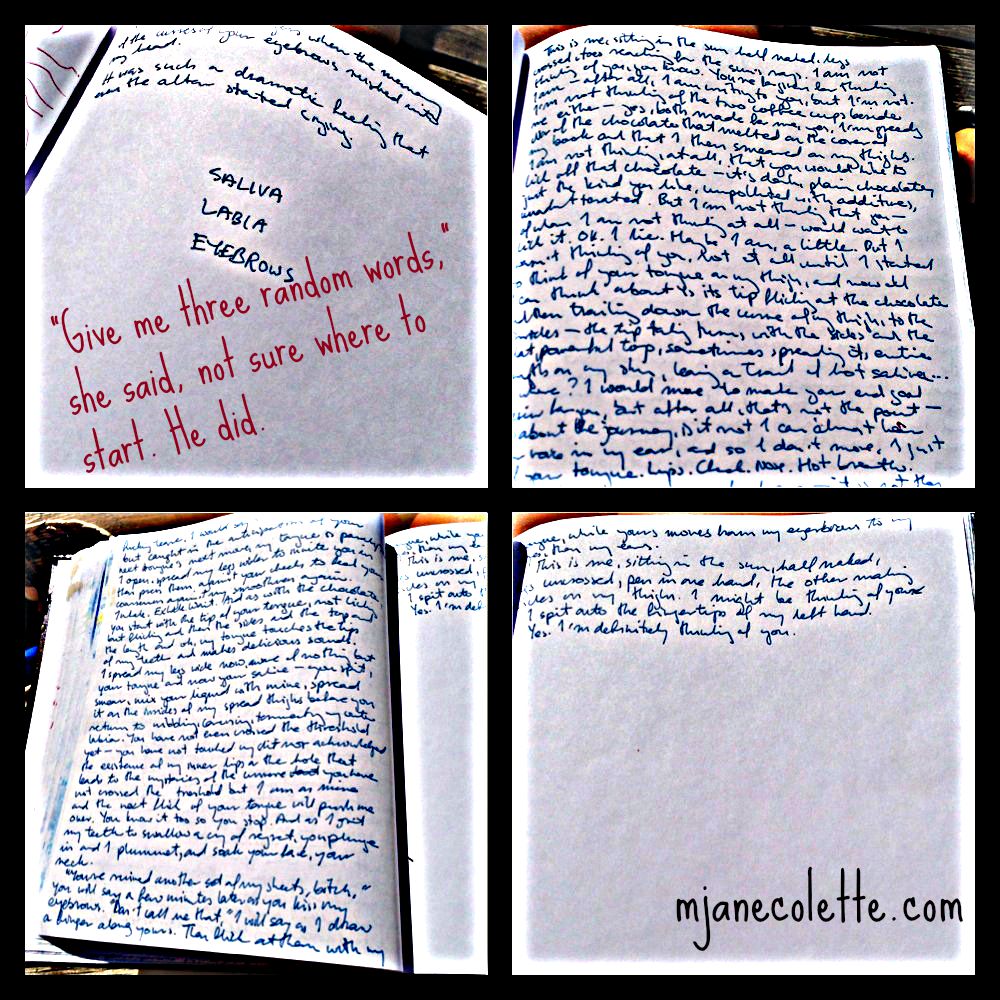 the curves of your eyebrows rushed into
my head.
It was such a dramatic feeling that
even the altar started
crying
SALIVA
LABIA
EYEBROWS
"Give me three random words,"
she said, not sure where to
start. He did.
This is me, sitting in the sun, half naked, legs
crossed, toes reaching for the sun's rays. I am not
thinking of you, you know. You're
after all, I am writing to you, but I'm not.
I'm not thinking of the two coffee cups beside
me either – yes, both made for me, yes, I'm greedy
of the chocolate that melted on the cover of
my book and that I then smeared on my thighs.
I am not thinking, at all, that you would like to
lick off all that chocolate – it's dark, plain chocolate,
just the kind you like, unpolluted with additives,
But I'm not thinking that you –
I am not thinking at all – would want to
lick it. OK. I lie. Maybe I am, a little. But I
wasn't thinking of you, not at all until I started
to think of your tongue on my thigh, and now all
I can think about is its tip flicking at the chocolate
then trailing down the curve of my thigh, to the
– the tip taking turns with the sides and the
powerful top, sometimes spreading its entire
on my skin, leaving a trail of hot saliva...
I would move to make your end goal
but after all, that's not the point –
about the journey, is it not? I can almost hear
voice in my ear, and so I don't move, I just
your tongue. Lips. Cheek. Nose. Hot breath.
I would say
but caught in the anticipation of your
tongue's next move, my tongue is
I open, spread my legs wider to invite you in
then press them against your cheeks to
my
Inhale. Exhale. Wait. And as with the chocolate,
you start with the tip of your tongue, not licking
but flicking and then the sides and the top and
the length and oh, my tongue touches the tip
of my teeth and makes delicious sounds.
I spread my legs wide now, aware of nothing but
your tongue and now your saliva – you spit,
smear, mix your liquid with mine, spread
it on the insides of my spread thighs before you
return to nibbling, caressing, tormenting my outer
labia. You have not even crossed the threshold
yet – you have not touched my clit nor acknowledged
the existence of my inner lips or the hole that
leads to the mysteries of the universe you have
not crossed the threshold but I am
and the next flick of your tongue will push me
over. You know it too so you stop. And as I grind
my teeth to swallow a cry of regret, you plunge
in and I plummet, and soak your face, your
neck.
"You've ruined another set of my sheets, bitch,"
you will say a few minutes later as you kiss my
eyebrows. "Don't call me that," I will say as I draw
a finger along yours. Then flick at them with my
tongue, while yours moves from my eyebrows to my
then my ears.
This is me, sitting in the sun, half naked,
uncrossed, pen in one hand, the other making
circles on my thighs. I might be thinking of you
I spit onto the fingertips of my left hand.
Yes. I'm definitely thinking of you.
mjanecolette.com